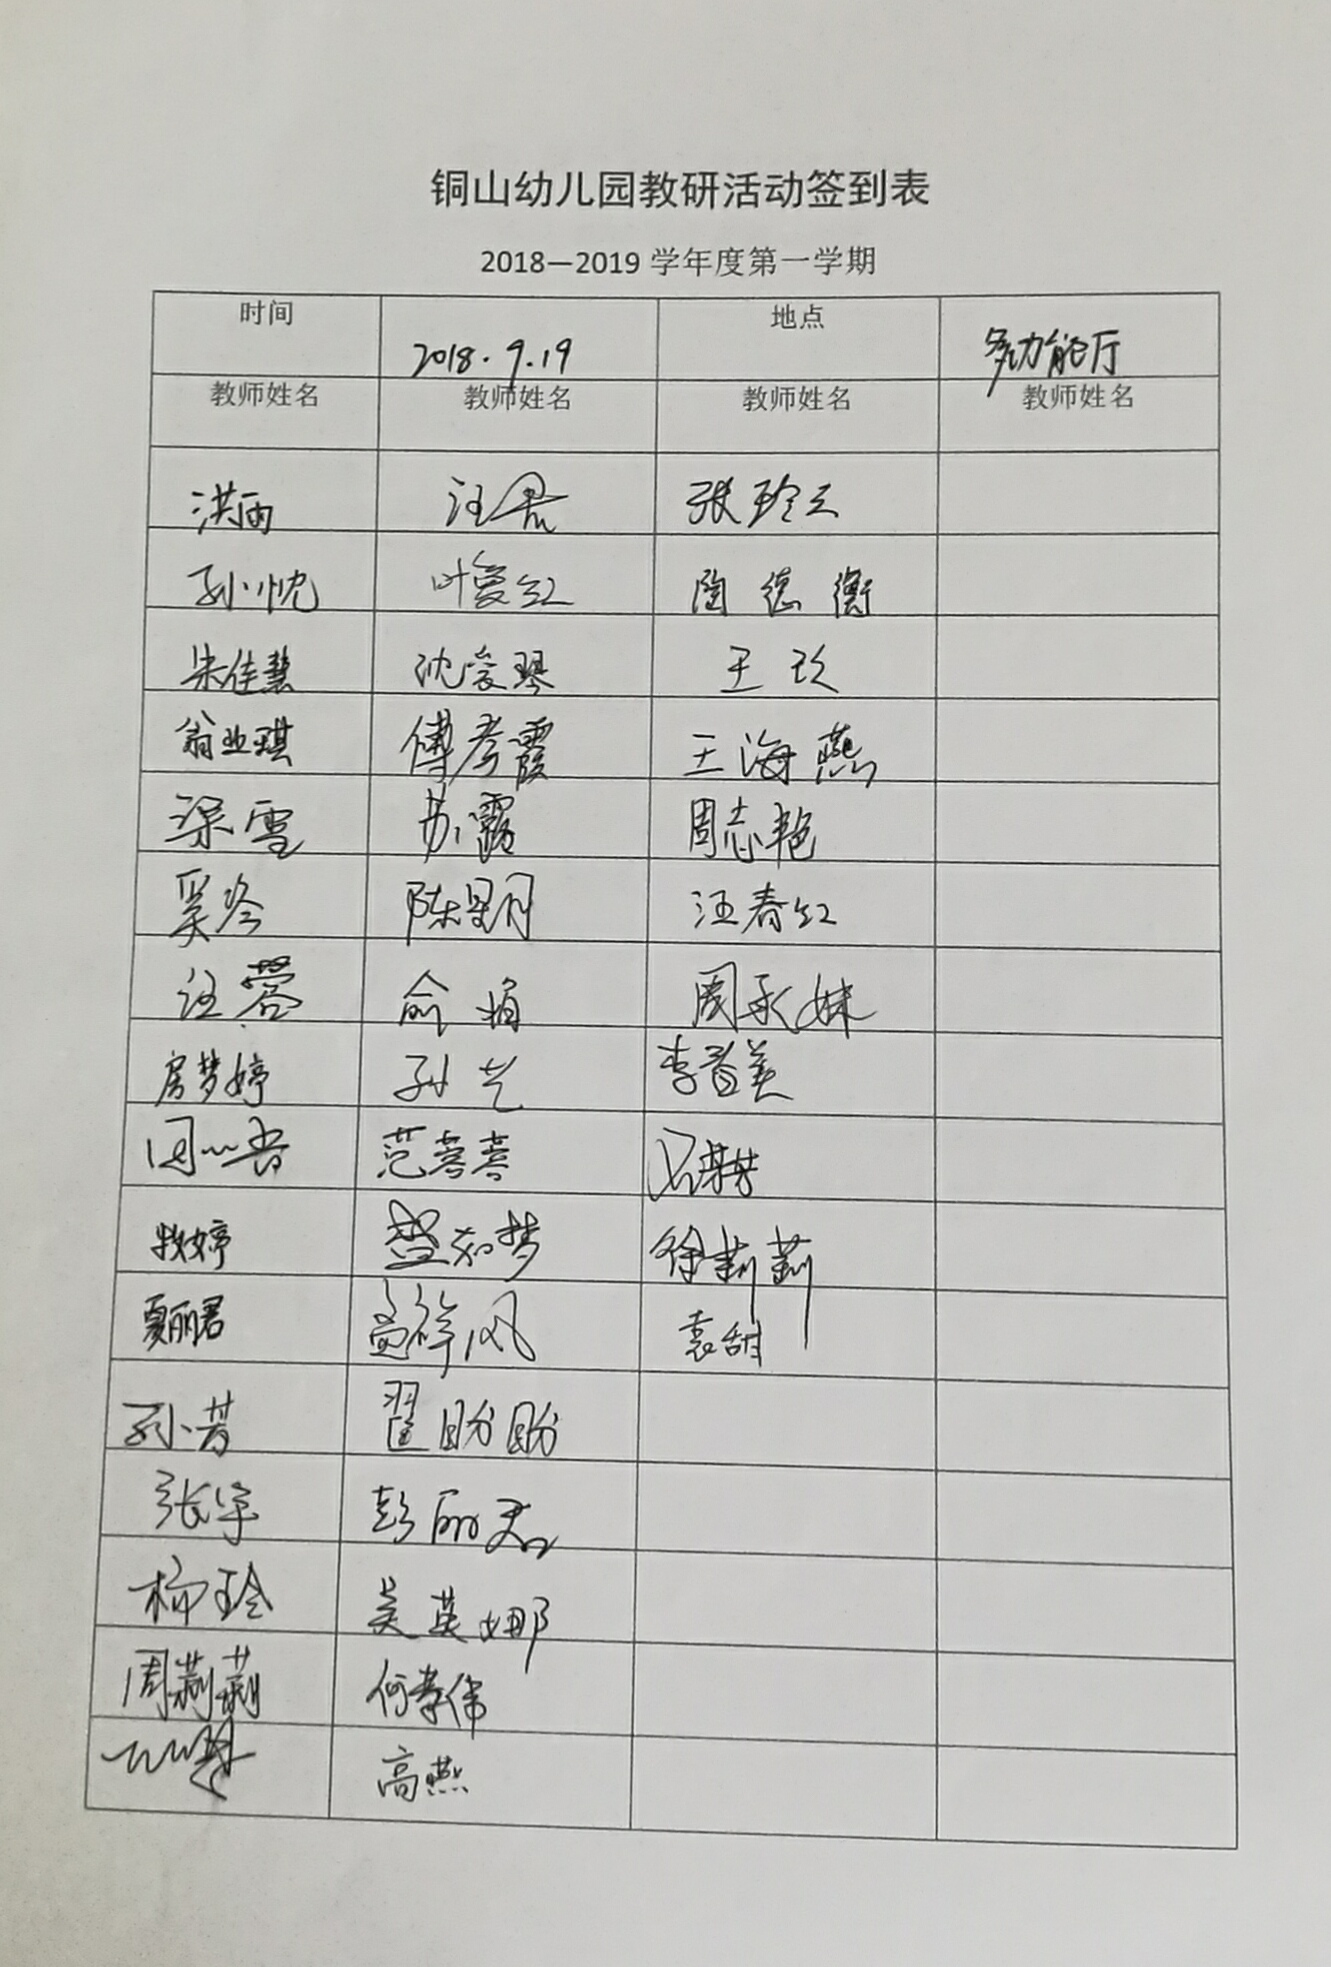 铜山幼儿园教研活动签到表
2018—2019 学年度第一学期
时间 2018.9.19 地点 多功能厅
教师姓名 教师姓名 教师姓名 教师姓名
洪雨 汪君 张玲云
孙忱 叶爱红 陶德衡
朱佳慧 沈爱琴 王玖
翁业琪 傅孝霞 王海燕
梁雪 苏露 周志艳
奚冷 陈星月 汪春红
汪蓉 俞娟 周永妹
房梦婷 孙艺 李首美
范喜喜
牧婷 盛知梦 徐莉莉
夏丽君 袁甜
孙芳 翟盼盼
张宇 彭丽君
杨玲 吴英娜
周莉莉 何孝伟
高燕